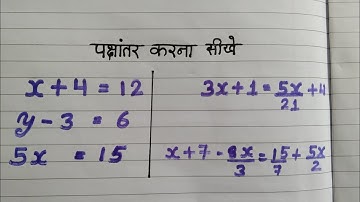 पक्षांतर करना सीखे
x + 4 = 12
y - 3 = 6
5x = 15
3x + 1 = 5x/21 + 4
x + 7 - 8x/3 = 15/7 + 5x/2